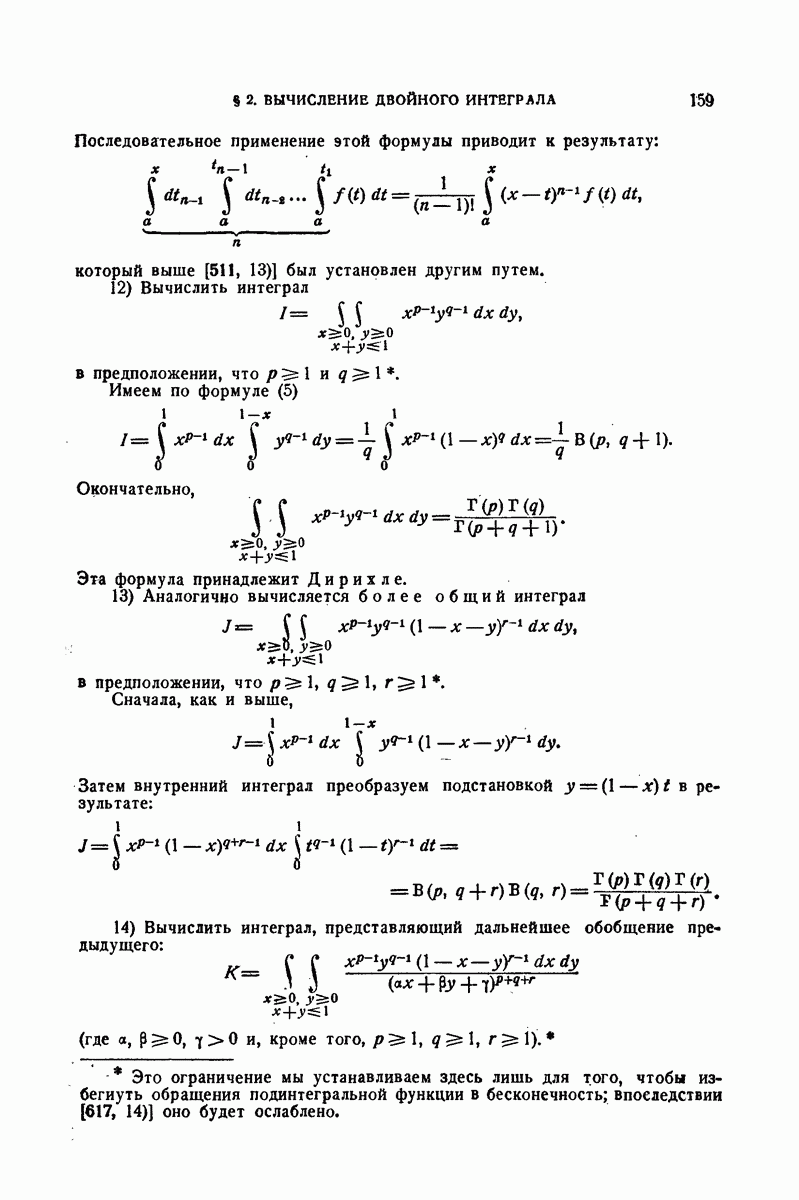 § 2. ВЫЧИСЛЕНИЕ ДВОЙНОГО ИНТЕГРАЛА 159
Последовательное применение этой формулы приводит к результату:
x tₙ₋₁ t₁ x
∫ dtₙ₋₁ ∫ dtₙ₋₂ ... ∫ f(t) dt = 1/(n — 1)! ∫ (x — t)ⁿ⁻¹ f(t) dt,
a a a a
n
который выше [511, 13)] был установлен другим путем.
12) Вычислить интеграл
I = ∫∫ xᵖ⁻¹y^(q-1) dx dy,
x ≥ 0, y ≥ 0
x + y ≤ 1
в предположении, что p ≥ 1 и q ≥ 1 *.
Имеем по формуле (5)
1 1 — x 1
I = ∫ xᵖ⁻¹ dx ∫ y^(q-1) dy = 1/q ∫ xᵖ⁻¹ (1 — x)^q dx = 1/q B (p, q + 1).
0 0 0
Окончательно,
∫∫ xᵖ⁻¹y^(q-1) dx dy = Γ (p) Γ (q) / Γ (p + q + 1).
x ≥ 0, y ≥ 0
x + y ≤ 1
Эта формула принадлежит Дирихле.
13) Аналогично вычисляется более общий интеграл
J = ∫∫ xᵖ⁻¹y^(q-1) (1 — x — y)^(r-1) dx dy,
x ≥ 0, y ≥ 0
x + y ≤ 1
в предположении, что p ≥ 1, q ≥ 1, r ≥ 1 *.
Сначала, как и выше,
1 1 — x
J = ∫ xᵖ⁻¹ dx ∫ y^(q-1) (1 — x — y)^(r-1) dy.
0 0
Затем внутренний интеграл преобразуем подстановкой y = (1 — x) t в ре-
зультате:
1 1
J = ∫ xᵖ⁻¹ (1 — x)^(q+r-1) dx ∫ t^(q-1) (1 — t)^(r-1) dt =
0 0
= B (p, q + r) B (q, r) = Γ (p) Γ (q) Γ (r) / Γ (p + q + r).
14) Вычислить интеграл, представляющий дальнейшее обобщение пре-
дыдущего:
K = ∫∫ xᵖ⁻¹y^(q-1) (1 — x — y)^(r-1) dx dy / (αx + βy + γ)^(p+q+r)
x ≥ 0, y ≥ 0
x + y ≤ 1
(где α, β ≥ 0, γ > 0 и, кроме того, p ≥ 1, q ≥ 1, r ≥ 1). *
* Это ограничение мы устанавливаем здесь лишь для того, чтобы из-
бегнуть обращения подинтегральной функции в бесконечность; впоследствии
[617, 14)] оно будет ослаблено.